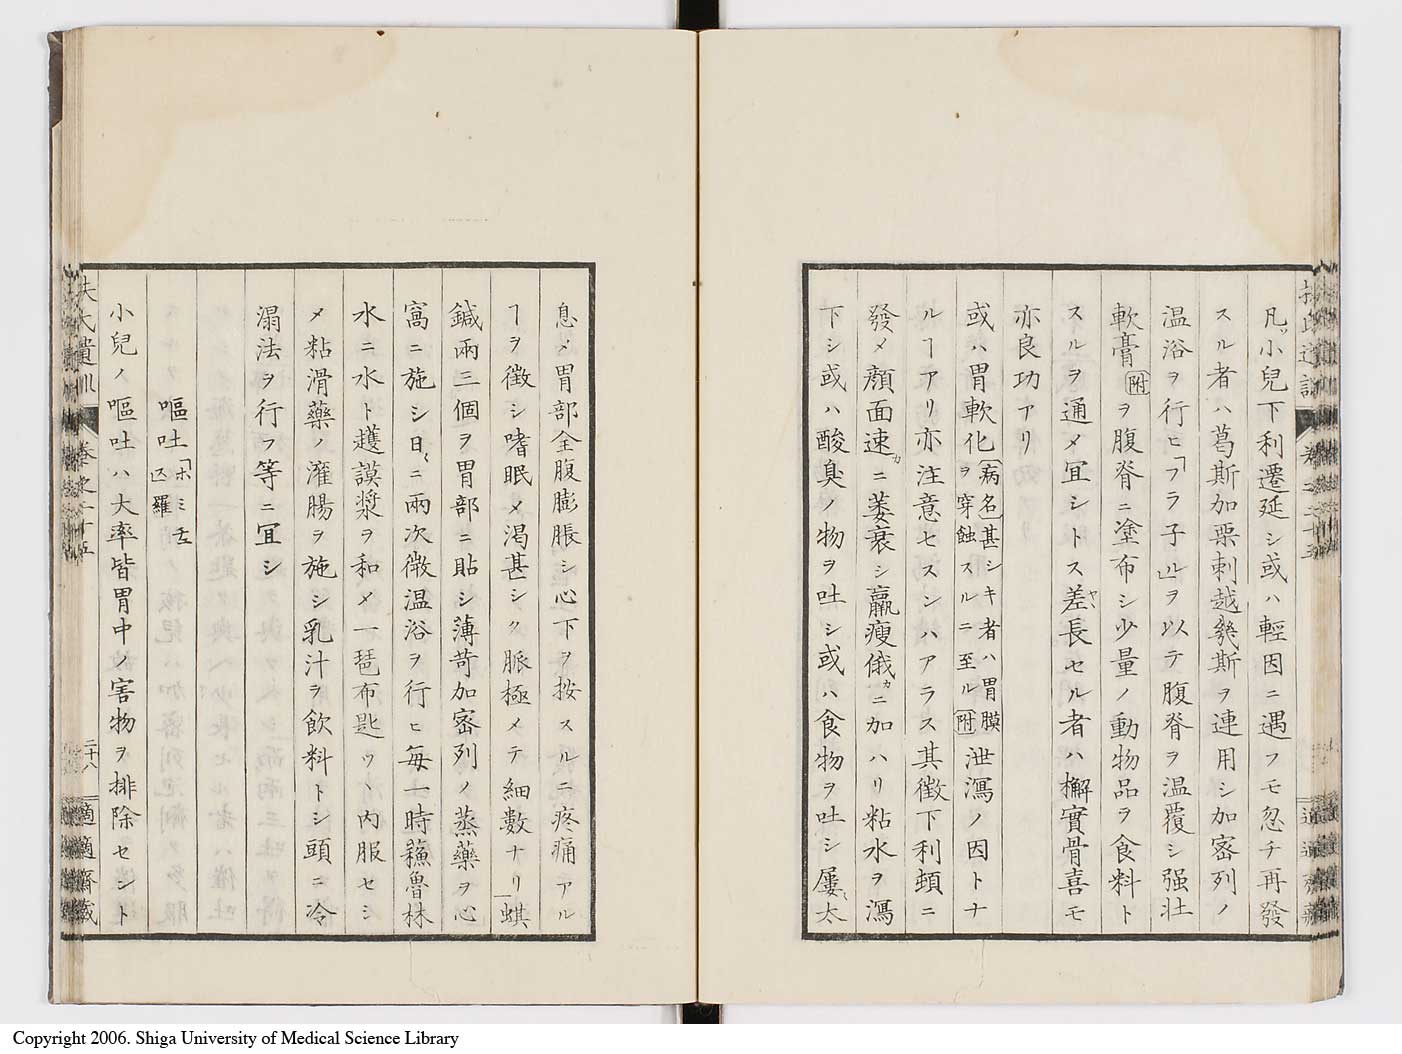 凡ソ小兒下利遷延シ或ハ輕因ニ遇フモ忽チ再發
スル者ハ葛斯加栗刺越幾斯ヲ連用シ加密列ノ
温浴ヲ行ヒ「フラ子ル」ヲ以テ腹脊ヲ温覆シ强壯
軟膏附ヲ腹脊ニ塗布シ少量ノ動物品ヲ食料ト
スルヲ通メ宜シトス差ヤヽ長セル者ハ檞實骨喜モ
亦良功アリ
或ハ胃軟化(病名)甚シキ者ハ胃膜ヲ穿蝕スルニ至ル附泄瀉ノ因トナ
ルヿアリ亦注意セスンハアラス其徴下利頻ニ
發メ顔面速カニ萎衰シ羸瘦俄カニ加ハリ粘水ヲ瀉
下シ或ハ酸臭ノ物ヲ吐シ或ハ食物ヲ吐シ屢々太
息メ胃部全腹膨脹シ心下ヲ按スルニ疼痛アル
ヿヲ徴シ嗜眠メ渇甚シク脈極メテ細數ナリ蜞
鍼兩三個ヲ胃部ニ貼シ薄荷加密列ノ蒸藥ヲ心
窩ニ施シ日々ニ兩次微温浴ヲ行ヒ毎一時蘓魯林
水ニ水ト護謨漿ヲ和メ一琶布匙ヅヽ內服セシ
メ粘滑藥ノ灌腸ヲ施シ乳汁ヲ飲料トシ頭ニ冷
溻法ヲ行フ等ニ宜シ
嘔吐「ホミチュス」羅
小兒ノ嘔吐ハ大率皆胃中ノ害物ヲ排除セント
扶氏遺訓 卷之二十五
二十八 適適齋藏